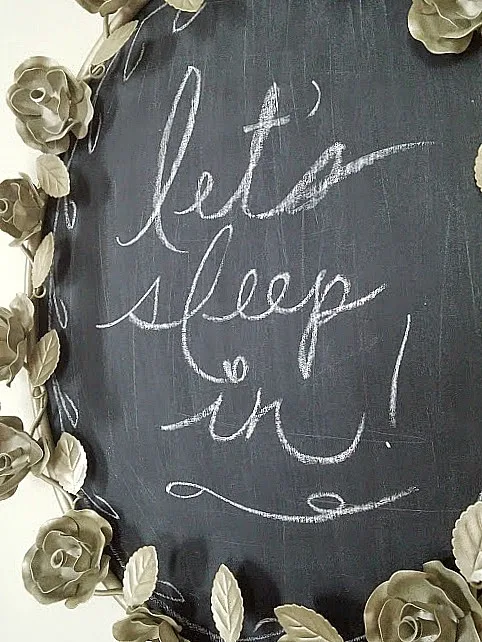 let's
sleep
in!